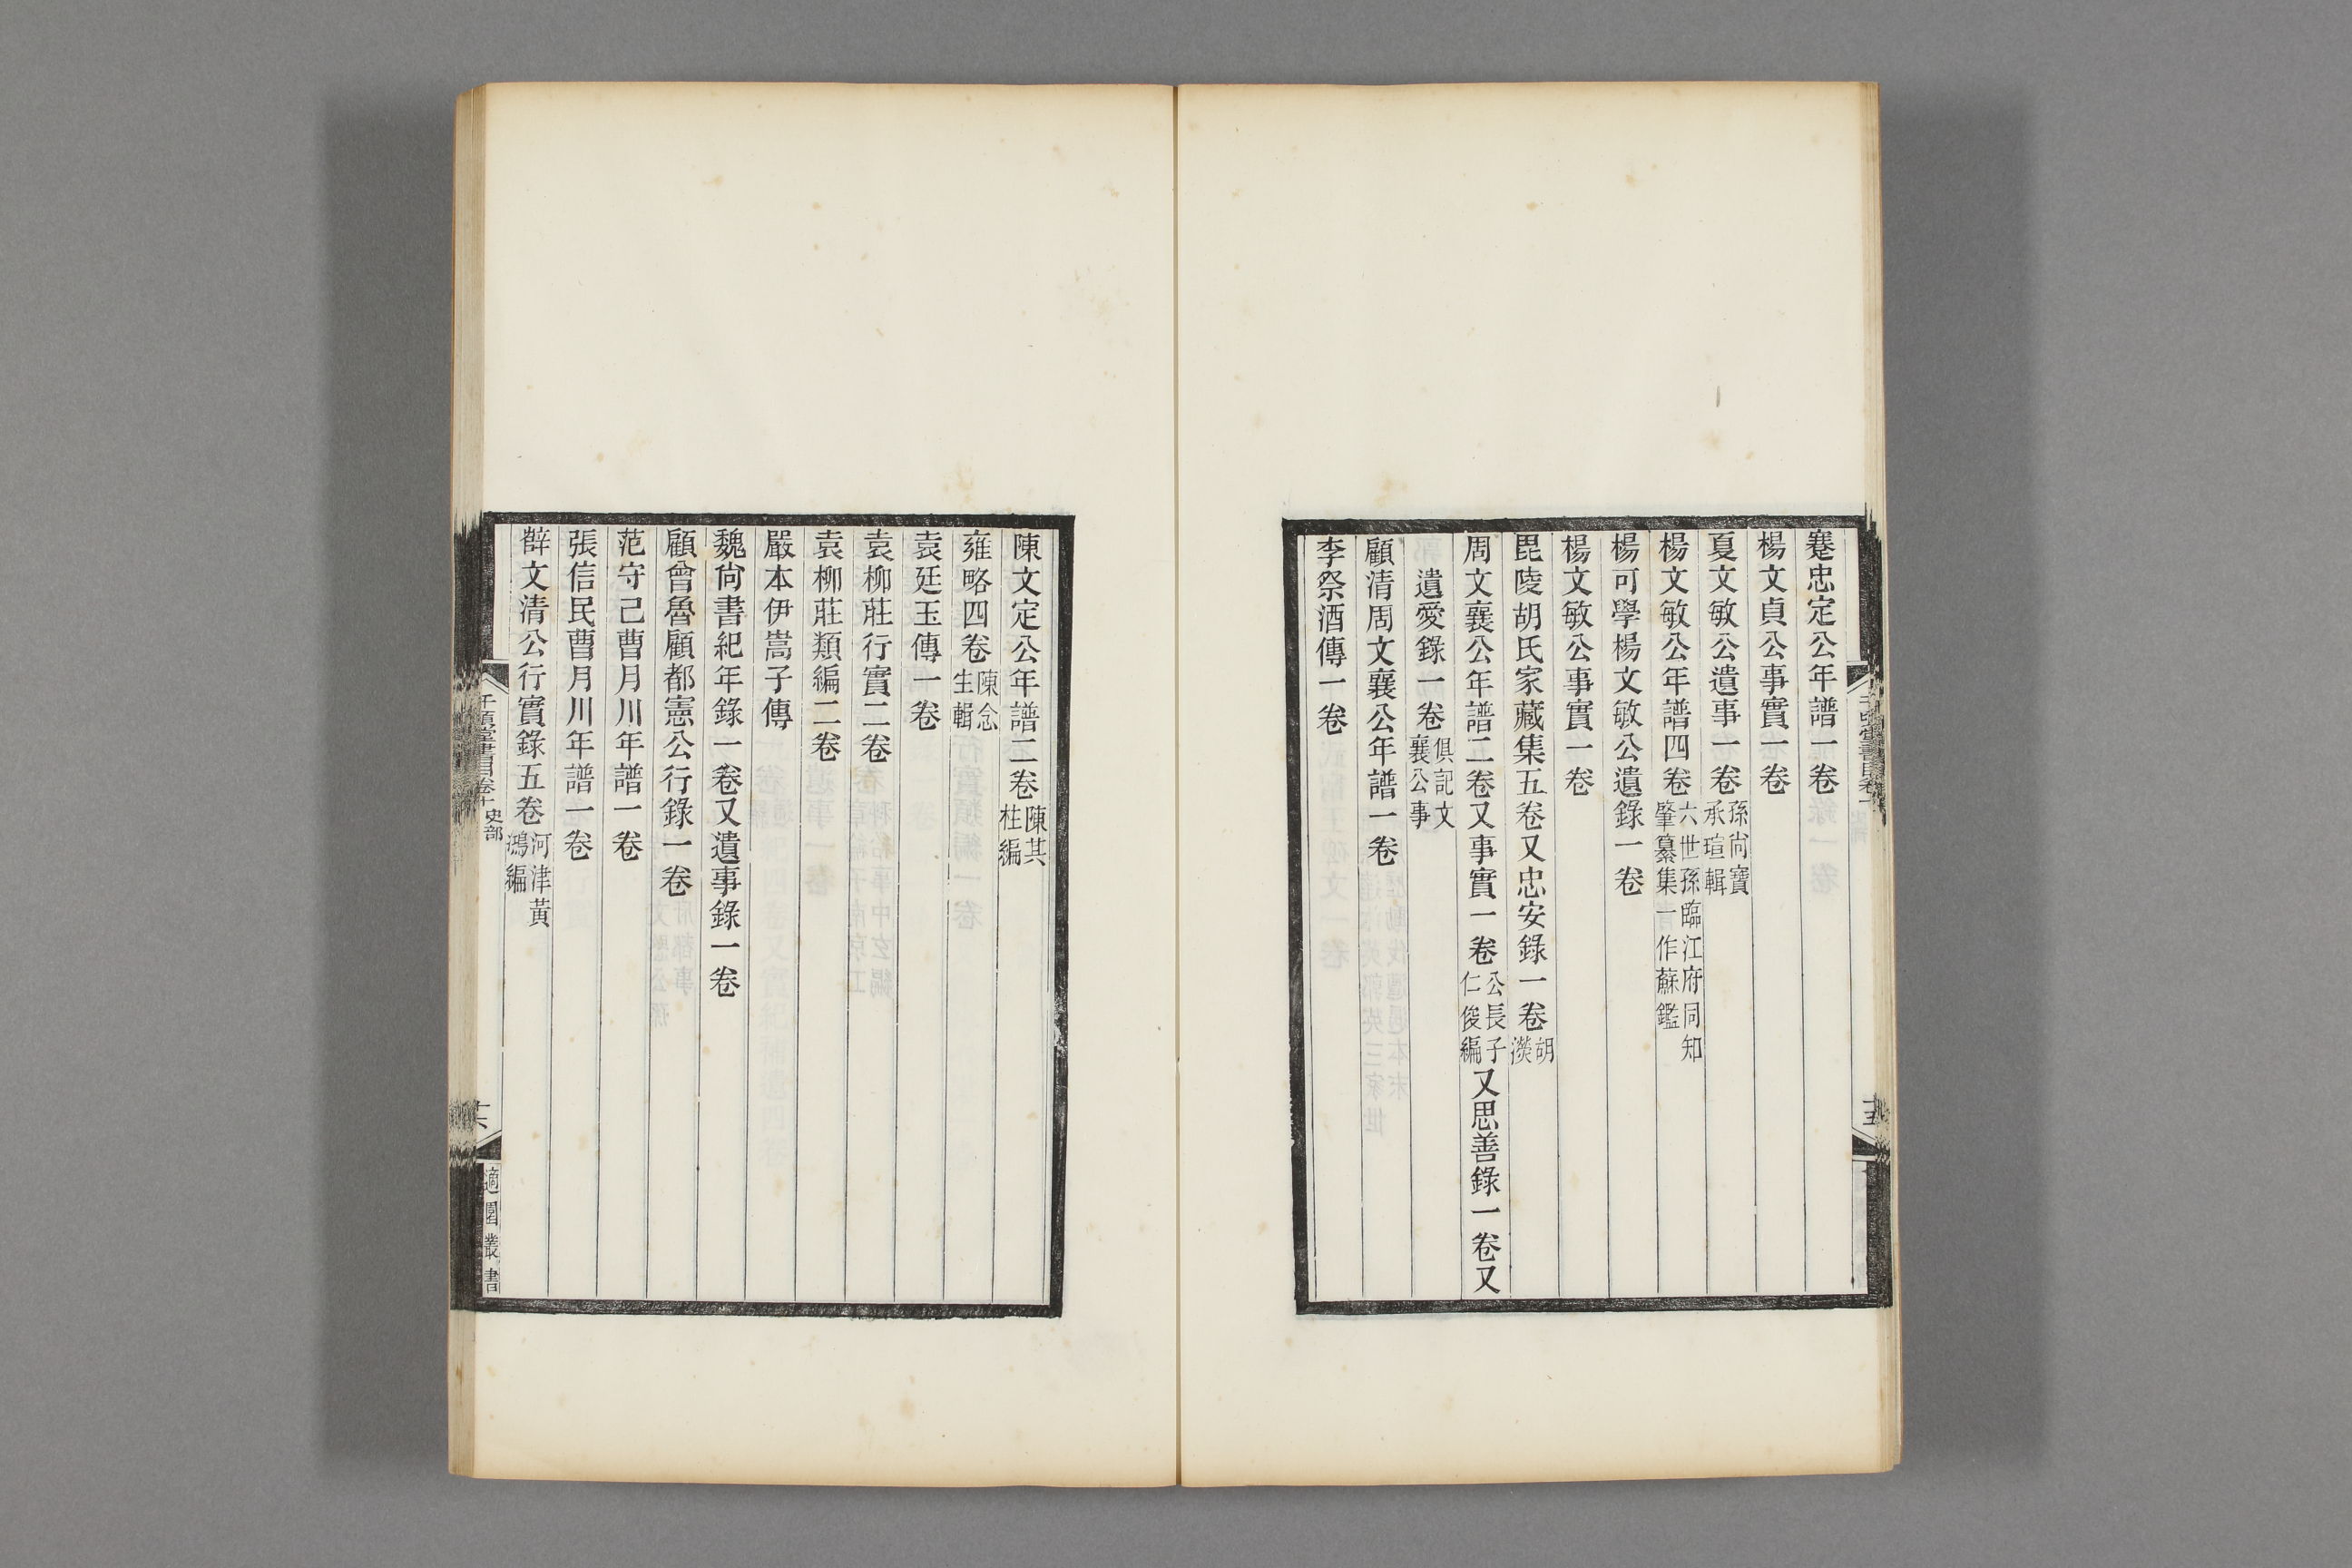 蹇忠定公年譜一卷
楊文貞公事實一卷
夏文敏公遺事一卷孫尙寶承瑄輯
楊文敏公年譜四卷六世孫臨江府同知肇纂集一作蘇鑑
楊可學楊文敏公遺錄一卷
楊文敏公事實一卷
毘陵胡氏家藏集五卷又忠安錄一卷胡濙
周文襄公年譜二卷又事實一卷公長子仁俊編又思善錄一卷又
遺愛錄一卷俱記文襄公事
顧清周文襄公年譜一卷
李祭酒傳一卷
陳文定公年譜二卷陳其柱編
雍略四卷陳念生輯
袁廷玉傳一卷
袁柳莊行實二卷
袁柳莊類編二卷
嚴本伊嵩子傳
魏尙書紀年錄一卷又遺事錄一卷
顧曾魯顧都憲公行錄一卷
范守己曹月川年譜一卷
張信民曹月川年譜一卷
薛文清公行實錄五卷河津黃鴻編
千頃堂書目卷十 史部
十六
適園叢書